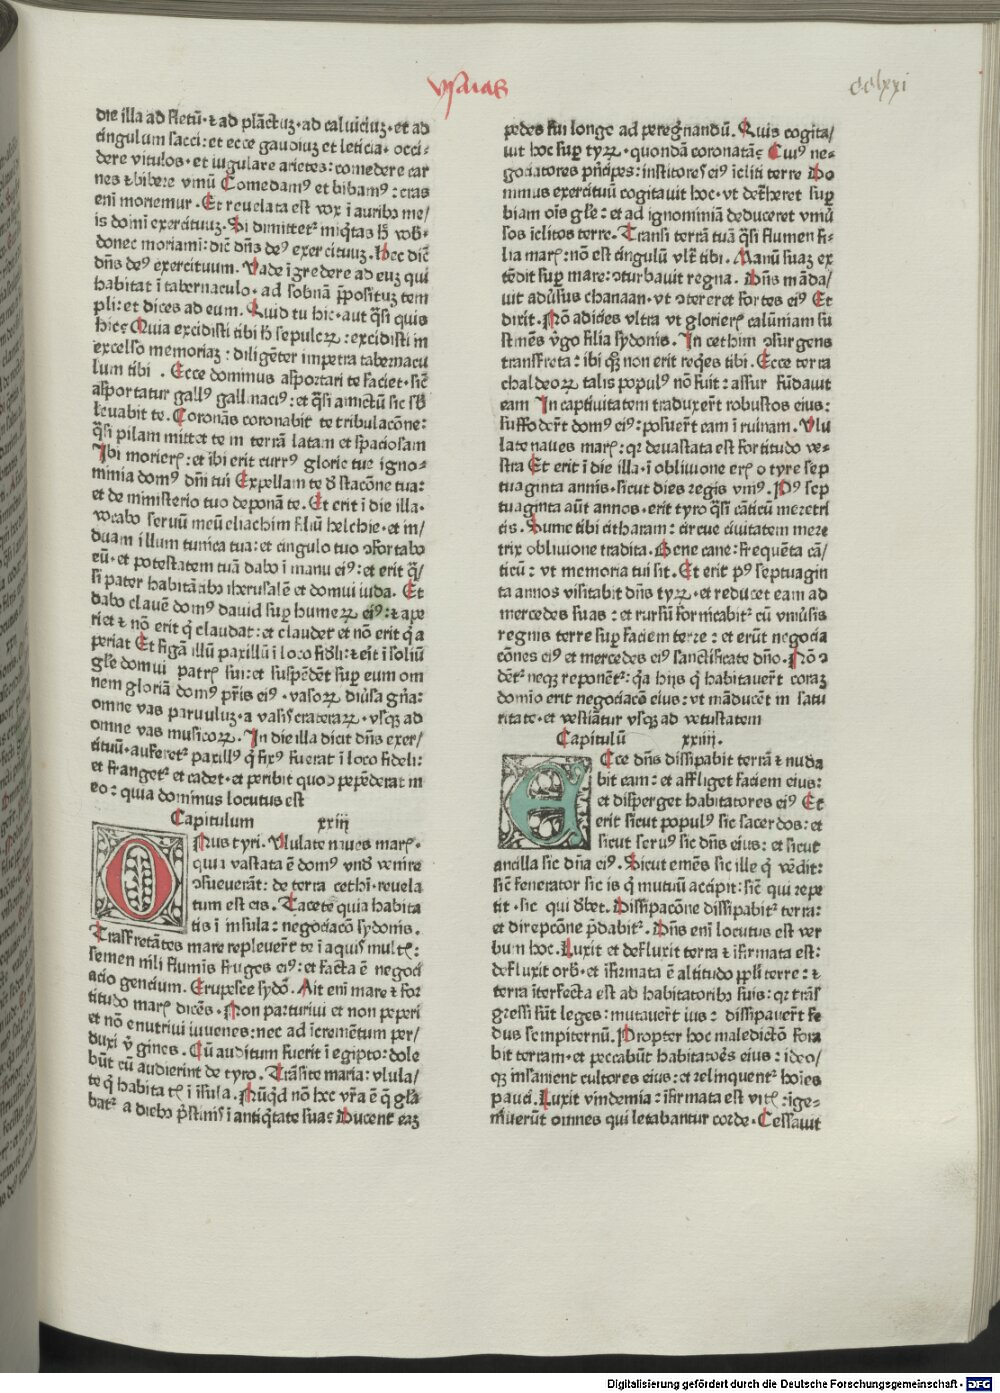 ysaias
cclxxi
die illa ad fletū·⁊ ad plāctuꝫ·ad caluiciuꝫ·et ad
cingulum sacci: et ecce gaudiuꝫ et leticia·occi⸗
dere vitulos·et iugulare arietes: comedere car
nes ⁊ bibere vinū Comedamꝰ et bibamꝰ: cras
eni moriemur·Et reuelata est vox ī auribꝰ me/
is domī exercituuꝫ·Si dimittetᷣ miqͥtas hᷣ vob̄·
donec moriamī: dic̄ dn̄s deꝰ exercituuꝫ·Hec dic̄
dn̄s deꝰ exercituum. Vade īgredere ad euꝫ qui
habitat ī tabernaculo·ad sobnā p̄positꝫ tem
pli: et dices ad eum. Quid tu hic·aut q̄si quis
hic⹎ Quia excidisti tibi h̄ sepulcꝝ: excidisti in
excelso memoriaꝫ: diligēter impetra tabernacu
lum tibi . Ecce dominus asportari te faciet·sic̄
asportatur gallꝰ gallinaciꝰ: et q̄si amictū sic sb̄
leuabit te. Coronās coronabit te tribulacōne:
q̄si pilam mittet te in terrā latam et spaciosam
Ibi morierꝭ: et ibi erit currꝰ glorie tue igno⸗
minia domꝰ dn̄i tui Expellam te de stacōne tua:
et de ministerio tuo deponā te. Et erit ī die illa·
vocabo seruū meū eliachim filiū helchie·et in/
duam illum tunica tua: et cingulo tuo ꝯfortabo
eū·et potestatem tuā dabo ī manu eiꝰ: et erit q̄/
si pater habitātibꝰ iherusalē et domui iuda. Et
dabo clauē domꝰ dauid sup̄ humeꝝ eiꝰ: ⁊ ape
riet ⁊ nō erit q̄ claudat: et claudet et nō erit q̄ a
periat Et figā illū paxillū ī loco fideli: ⁊ erit ī soliū
gl̄e domui patrꝭ sui: et suspēdēt sup̄ eum om
nem gloriā domꝰ pr̄is eiꝰ·vasoꝝ diūsa gn̄a:
omne vas paruuluꝫ·a vasis crateraꝝ·vsqꝫ ad
omne vas musicoꝝ. In die illa dicit dn̄s exer/
cituū·auferetᷣ paxillꝰ q̄ fixꝰ fuerat ī loco fideli:
et frangetᷣ et cadet·et peribit quod pepēderat in
eo: quia dominus locutus est
Capitulum xxiii
ONus tyri. Vlulate naues marꝭ·
quia vastata ē domꝰ vnde venire
ꝯsueuerāt: de terra cethī·reuela
tum est eis. Tacete quia habita
tis ī insula: negociacō sydonis.
Trāsfretātes mare repleuerūt te ī aquis multꝭ:
semen nili fluminis fruges eiꝰ: et facta ē negoci
atio gencium. Erupesce sydō. Ait eni mare ⁊ for
titudo marꝭ dicēs. Non parturiui et non peperi
et nō enutriui iuuenes: nec ad īcremētum per/
duxi v̄gines. Cū auditum fuerit ī egipto: dole
būt cū audierint de tyro. Trāsite maria: vlula/
te q̄ habitatꝭ ī īsula. Nūqd̄ nō hec vr̄a ē q̄ gl̄a
batᷣ a diebꝰ pristinis ī antiqͥtate sua⹎ Ducent eaꝫ
pedes sui longe ad peregrinandū. Quis cogita/
uit hoc sup̄ tyꝝ·quondā coronatā⹎ Cuiꝰ ne⸗
gociatores p̄ncipes: institores eiꝰ icliti terre Do
minus exercituū cogitauit hoc·vt det̄heret sup̄
biam oīs gl̄e: et ad ignominiā deduceret vniū
sos iclitos terre. Transi terrā tuā q̄si flumen fi⸗
lia marꝭ: nō est cingulū vltᷣ tibi. Manū suaꝫ ex
tēdit sup̄ mare: ꝯturbauit regna. Dn̄s māda/
uit adūsus chanaan·vt ꝯtereret fortes eiꝰ Et
dixit. Nō adicies vltra vt glorierꝭ calūniam su
stinēs v̄go filia sydonis. In cethim ꝯsurgens
transfreta: ibi qꝫ non erit req̄es tibi. Ecce terra
chaldeoꝝ talis populꝰ nō fuit: assur fūdauit
eam In captiuitatem traduxerūt robustos eius:
suffoderūt domꝰ eiꝰ: posuerūt eam ī ruinam. Vlu
late naues marꝭ: qꝛ deuastata est fortitudo ve⸗
stra Et erit ī die illa·ī obliuione erꝭ o tyre sep
tuaginta annis·sicut dies regis vniꝰ. Pꝰ sep
tuaginta aūt annos·erit tyro q̄si cāticū meretri
cis. Sume tibi citharam: circue ciuitatem mere
trix obliuione tradita. Bene cane: frequēta cā/
ticū: vt memoria tui sit. Et erit pꝰ septuagin
ta annos visitabit dn̄s tyꝝ·et reducet eam ad
mercedes suas: et rursū fornicabitᷣ cū vniūsis
regnis terre sup̄ faciem terre: et erūt negocia
cōnes eiꝰ et mercedes eiꝰ sanctificate dn̄o. Nō ꝯ
dētᷣ neqꝫ reponētᷣ: q̄a hijs q̄ habitauerūt coraꝫ
domīo erit negociacō eius: vt māducēt in satu
ritatē·et vestiātur vsqꝫ ad vetustatem
Capitulū xxiiii.
ECce dn̄s dissipabit terrā ⁊ nuda
bit eam: et affliget faciem eius:
et disperget habitatores eiꝰ Et
erit sicut populꝰ sic sacerdos: et
sicut seruꝰ sic dn̄s eius: et sicut
ancilla sic dn̄a eiꝰ. Sicut emēs sic ille q̄ vēdit:
sic̄ fenerator sic is q̄ mutuū accipit: sic̄ qui repe
tit·sic qui debet. Dissipacōne dissipabitᷣ terra:
et direpcōne p̄dabitᷣ. Dn̄s eni locutus est ver
bum hoc. Luxit et defluxit terra ⁊ īfirmata est:
defluxit orb̄·et īfirmata ē altitudo ppl̄i terre: ⁊
terra īterfecta est ab habitatoribꝰ suis: qꝛ trās
gressi sūt leges: mutauerūt ius: dissipauerūt fe
dus sempiternū. Propter hoc maledictō vora
bit terram·et peccabūt habitatoēs eius: ideo/
qꝫ insanient cultores eius: et relinquentᷣ hoīes
pauci. Luxit vindemia: īfirmata est vitꝭ: īge⸗
miuerūt omnes qui letabantur corde·Cessauit
Digitalisierung gefördert durch die Deutsche Forschungsgemeinschaft - DFG